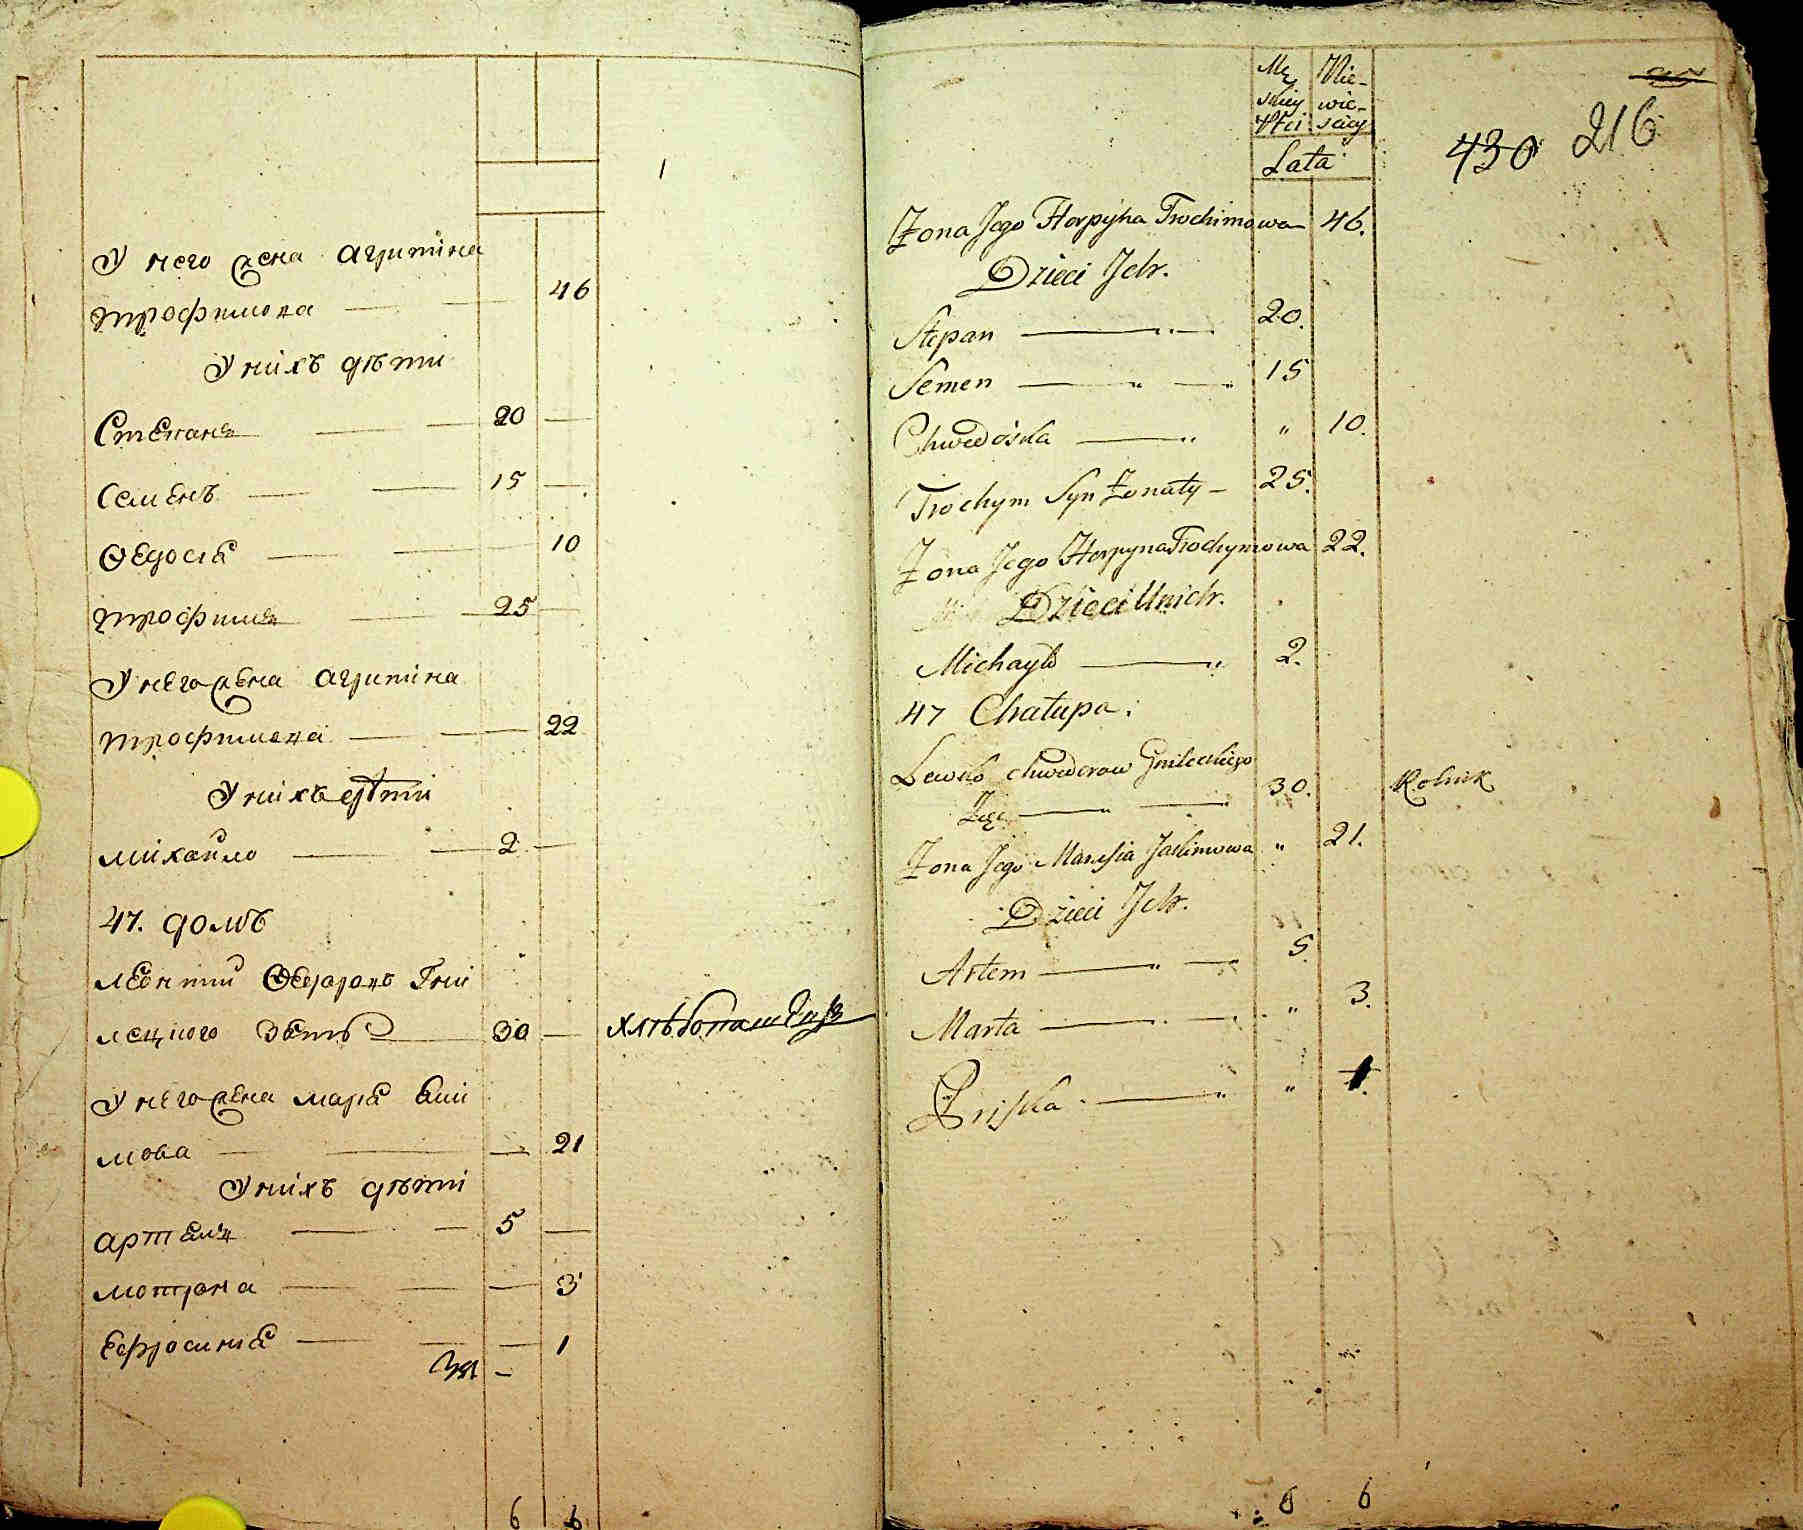 1
У него жена Агрипина
Трофимова — — 46
У нихъ дѣти
Степанъ — — 20 —
Семенъ — — 15 —
Ѳедосія — — 10
Трофимъ — — 25 —
У него жена Агрипина
Трофимова — — 22
У нихъ дѣти
Михайло — — 2 —
47. домъ
Леонтий Ѳедоровъ Гни
лецкого зять — 30 — хлѣбопашецъ
У него жена Марія Аки
мова — — — 21
У нихъ дѣти
Артемъ — — 5 —
Мотрона — — — 3
Ефросинія — — — 1
6 6
Mę Nie-
skiey wie-
Płci sciey
Lata
430 216
Żona Jego Horpyna Trochimowa 46.
Dzieci Jch.
Stepan — „ — 20.
Semen — „ — „ 15
Chwedośka — „ „ 10.
Trochym Syn Żonaty — 25.
Żona Jego Horpyna Trochymowa 22.
Dzieci Unich.
Michayło — „ 2.
47 Chałupa.
Lewko Chwedorow Gnileckiego
Zięć — „ — „ 30. Rolnik
Żona Jego Marysia Jakimowa „ 21.
Dzieci Jch.
Artem — „ — 5.
Marta — „ — „ 3.
Pryśka — „ „ 1.
6 6